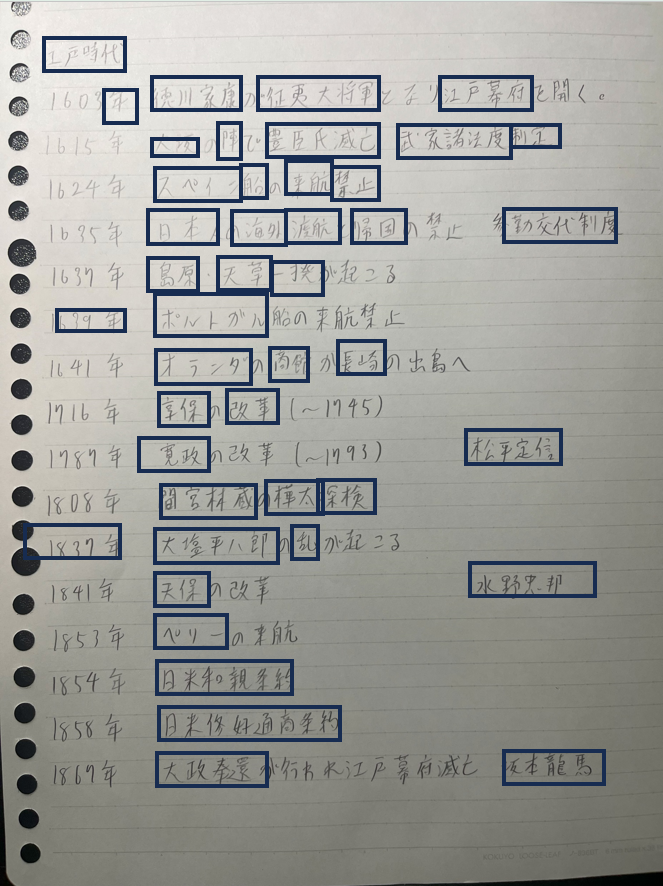 江戸時代
1603年 徳川家康が征夷大将軍となり江戸幕府を開く。
1615年 大阪の陣で豊臣氏滅亡 武家諸法度制定
1624年 スペイン船の来航禁止
1635年 日本人の海外渡航と帰国の禁止 参勤交代制度
1637年 島原・天草一揆が起こる
1639年 ポルトガル船の来航禁止
1641年 オランダの商館が長崎の出島へ
1716年 享保の改革(〜1745)
1787年 寛政の改革(〜1793) 松平定信
1808年 間宮林蔵の樺太探検
1837年 大塩平八郎の乱が起こる
1841年 天保の改革 水野忠邦
1853年 ペリーの来航
1854年 日米和親条約
1858年 日米修好通商条約
1867年 大政奉還が行われ江戸幕府滅亡 坂本龍馬